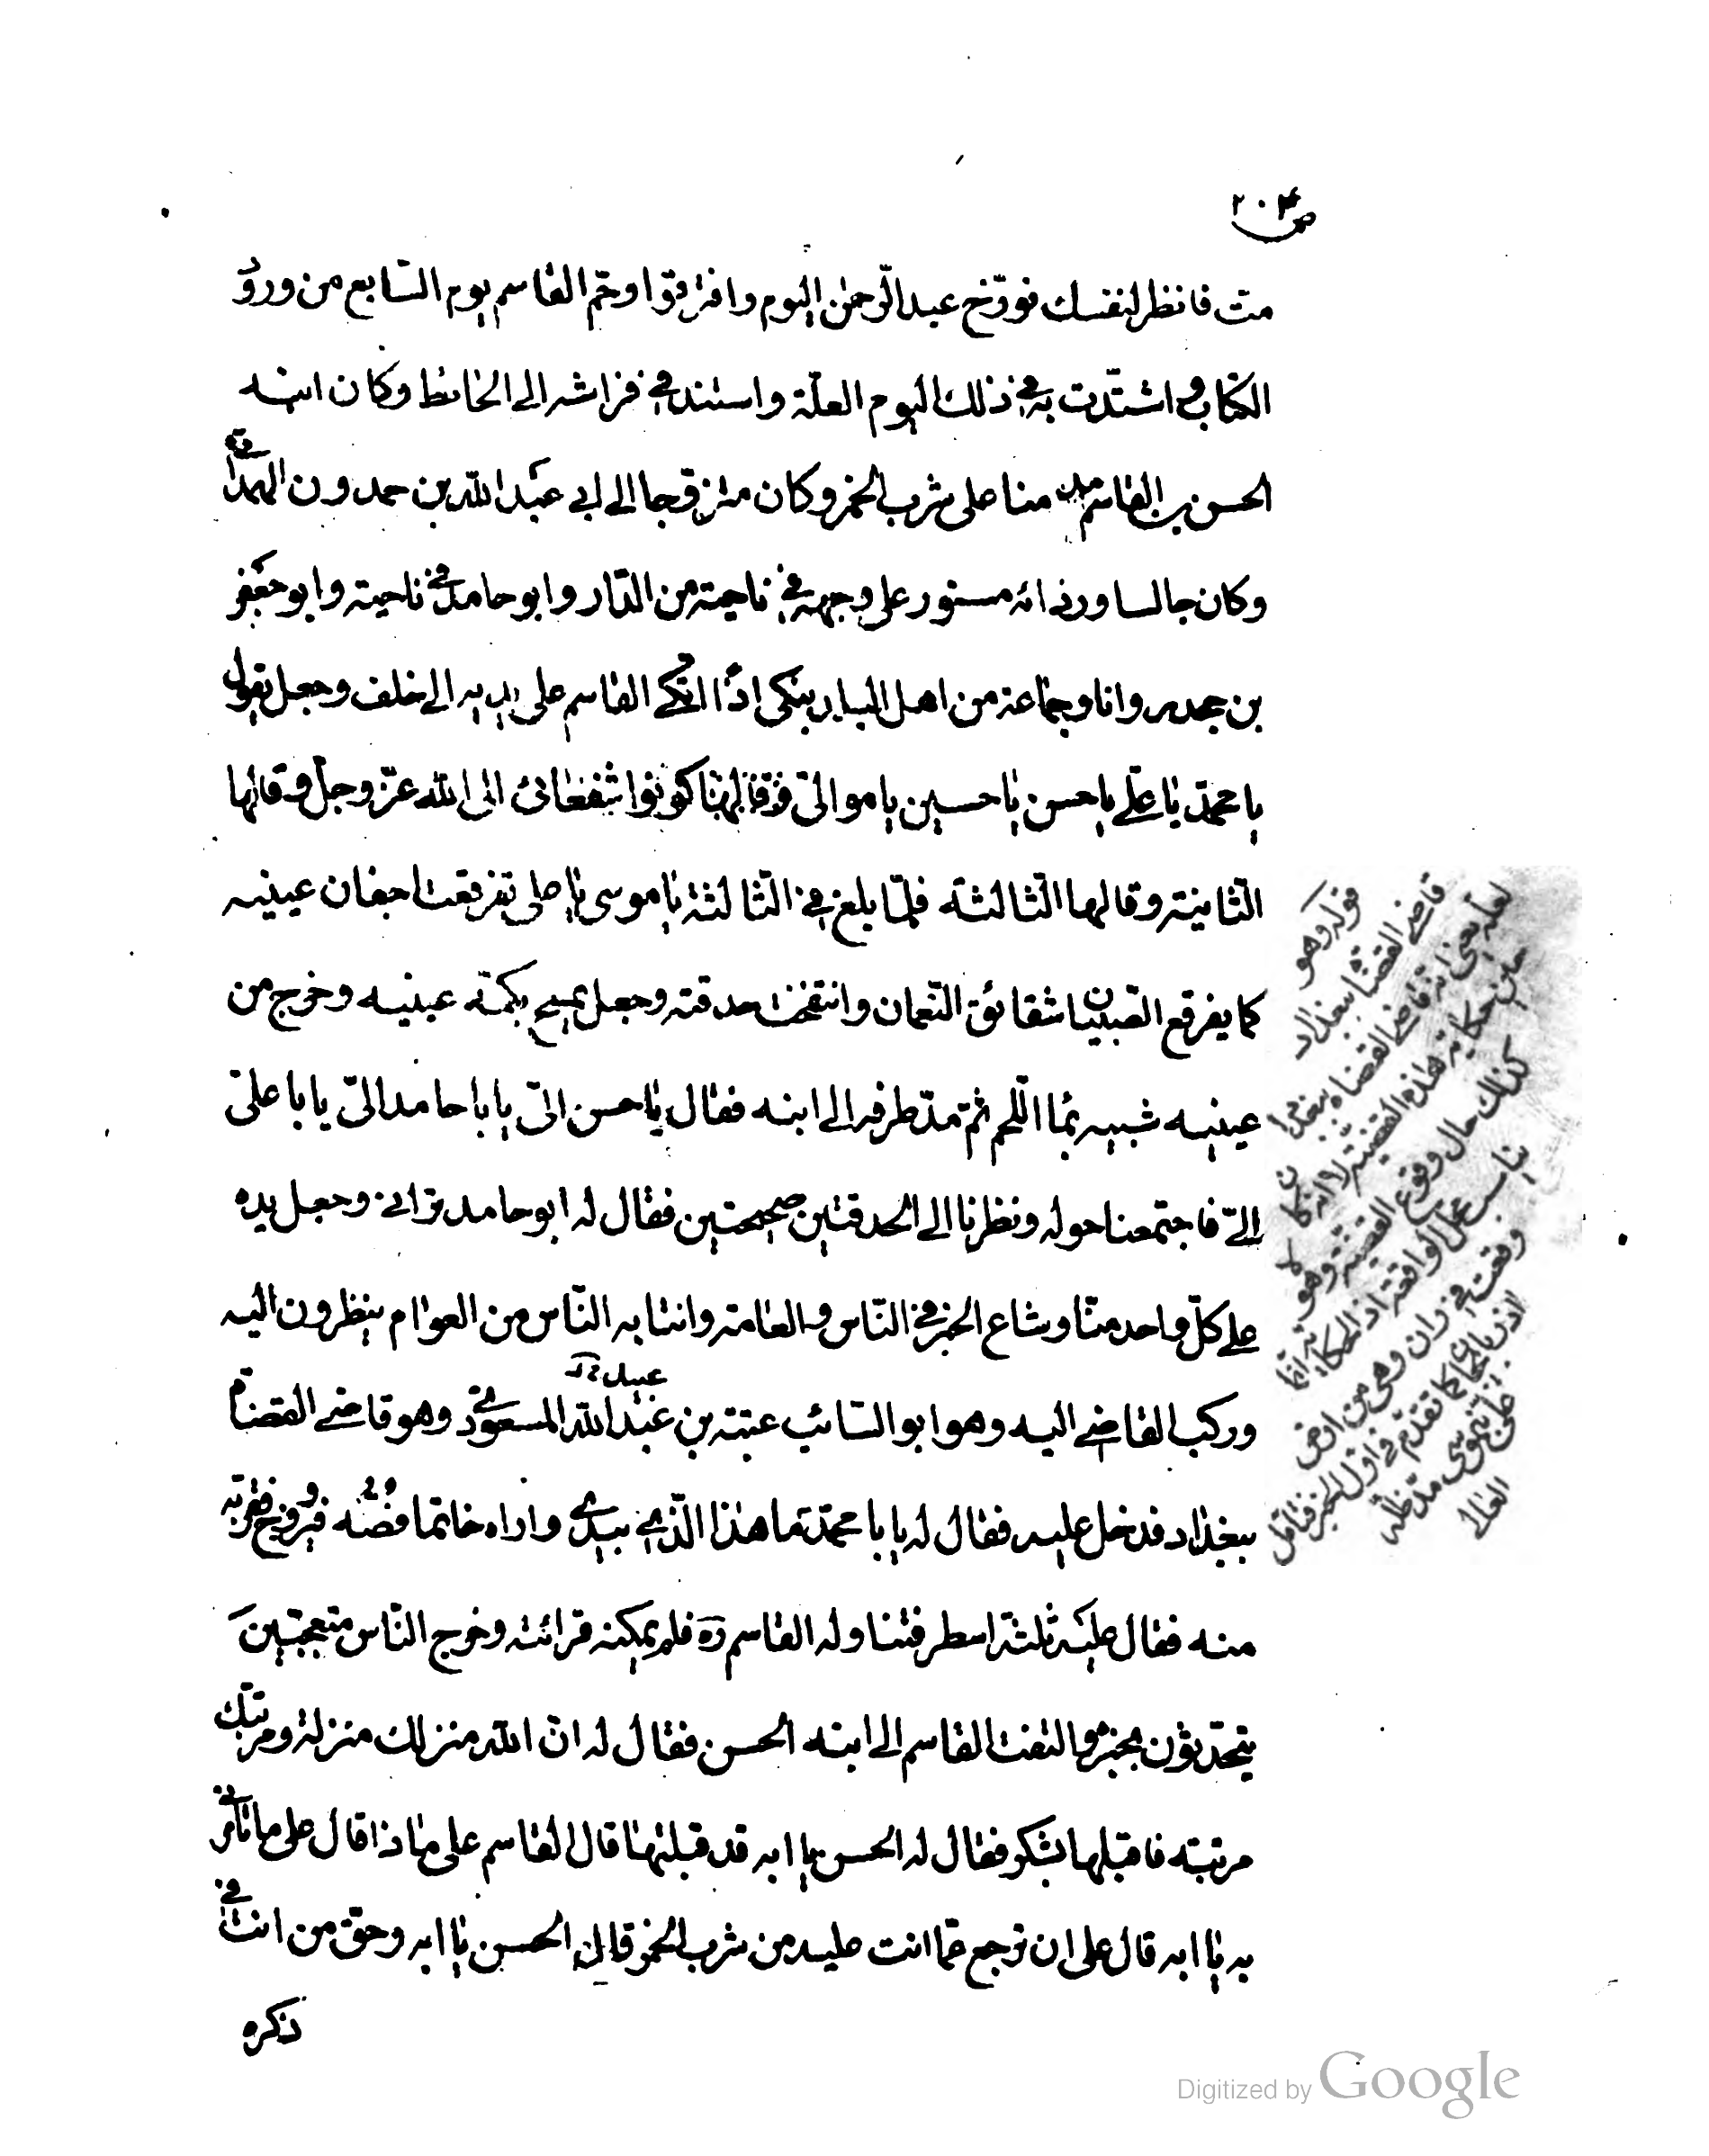 ص ٢٠٤
مت فانظر لنفسك فورّخ عبد الرّحمن اليوم وافترقوا وحمّ القاسم يوم السّابع من ورود
الكتاب واشتدّت به في ذلك اليوم العلّة واستند في فراشه الى الحائط وكان ابنه
الحسن بن القاسم مدمنا على شرب الخمر وكان متزوّجا الى ابى عبد اللّه بن حمدون الهمدانى
وكان جالسا وردائه مستور على وجهه في ناحية من الدّار وابو حامد في ناحية وابو جعفر
بن جحدر وانا وجماعة من اهل البلد نبكى اذا اتّكى القاسم على يديه الى خلف وجعل يقول
يا محمّد يا علي يا حسن يا حسين يا موالىّ كونوا شفعائى الى اللّه عزّ وجلّ وقالها
الثّانية وقالها الثّالثة فلمّا بلغ في الثّالثة يا موسى يا على تفرقعت اجفان عينيه
كما يفرقع الصّبيان شقائق النّعمان وانتفخت حدقته وجعل يمسح بكمّه عينيه وخرج من
عينيه شبيه بماء اللّحم ثمّ مدّ طرفه الى ابنه فقال يا حسن الىّ يا با حامد الىّ يا با علىّ
الىّ فاجتمعنا حوله ونظرنا الى الحدقتين صحيحتين فقال له ابو حامد ترانى وجعل يده
على كلّ واحد منّا وشاع الخبر في النّاس والعامّة وانتابه النّاس من العوام ينظرون اليه
وركب القاضى اليه وهو ابو السّائب عتبة بن عبيد اللّه المسعودى وهو قاضى القضاة
ببغداد فدخل عليه فقال له يا با محمّد ما هذا الّذى بيدى واراه خاتما فصّه فيروزج فقرّبه
منه فقال عليه ثلثة اسطر فتناوله القاسم ره فلم يمكنه قرائته وخرج النّاس متعجّبين
يتحدّثون بخبره والتفت القاسم الى ابنه الحسن فقال له انّ اللّه منزلك منزلة ومرتّبك
مرتبة فاقبلها بشكر فقال له الحسن يا ابه قد قبلتها قال القاسم على ماذا قال على ما تأمرنى
به يا ابه قال على ان ترجع عمّا انت عليه من شرب الخمر قال الحسن يا ابه وحقّ من انت في
ذكره
قوله وهو
قاضى القضاة ببغداد
لعلّه يعنى انه قاضى القضاة ببغداد
حين حكاية هذه القضيّة لا انه كان
كذلك حال وقوع القضيّة وهو لا
يناسب محلّ الواقعة اذ الحكاية انّما
وقعت في ران وهى من ارض
اذربايجان كما تقدّم في اوّل الخبر فتامّل
مدّ ظلّه
العالى
Digitized by Google